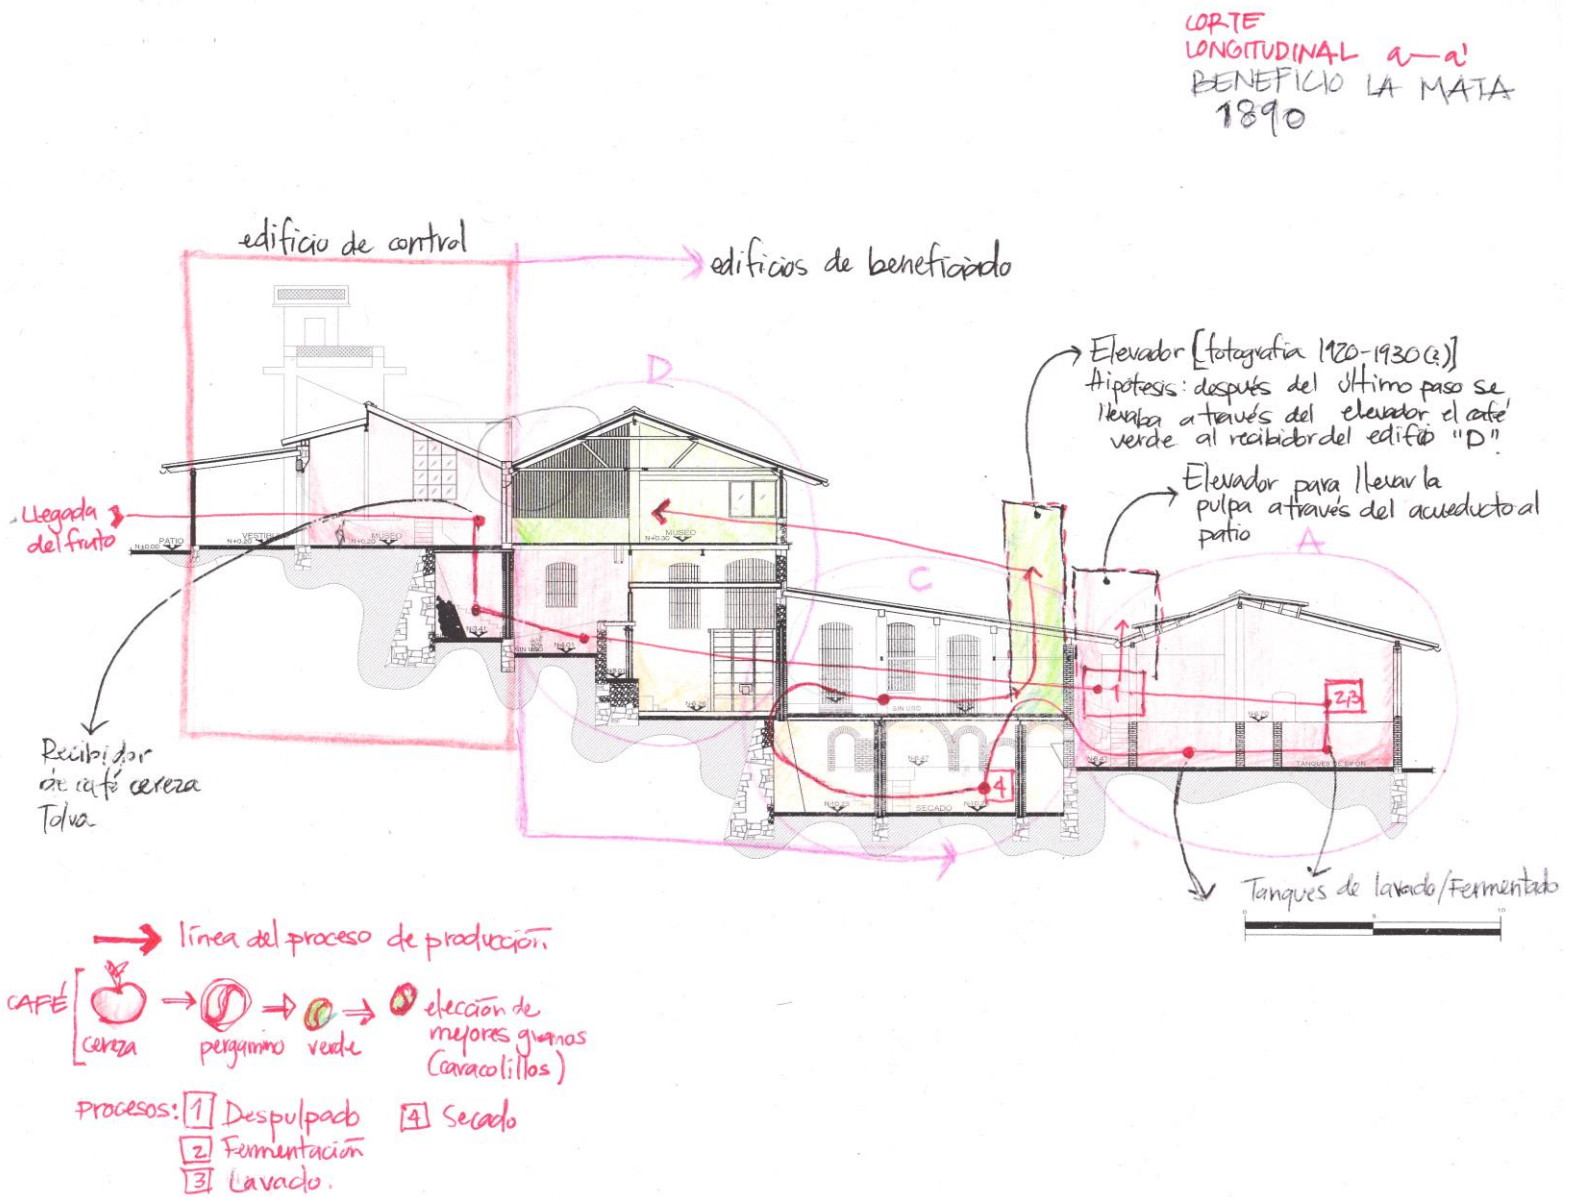 CORTE
LONGITUDINAL a—a'
BENEFICIO LA MATA
1890
edificio de control
edificios de beneficiado
Elevador [fotografía 1920-1930(?)]
Hipótesis: después del último paso se
llevaba a través del elevador el café
verde al recibidor del edificio "D"
Elevador para llevar la
pulpa a través del acueducto al
patio
D
C
A
Llegada
del fruto
PATIO
N+0.00
N+0.20
MUSEO
N+0.20
MUSEO
N+0.30
SIN USO
SIN USO
1
2,3
4
SECADO
Recibidor
de café cereza
Tolva
Tanques de lavado/Fermentado
0 5 10
línea del proceso de producción
CAFÉ
cereza
pergamino
verde
elección de
mejores granos
(caracolillos)
Procesos: 1 Despulpado
2 Fermentación
3 Lavado.
4 Secado